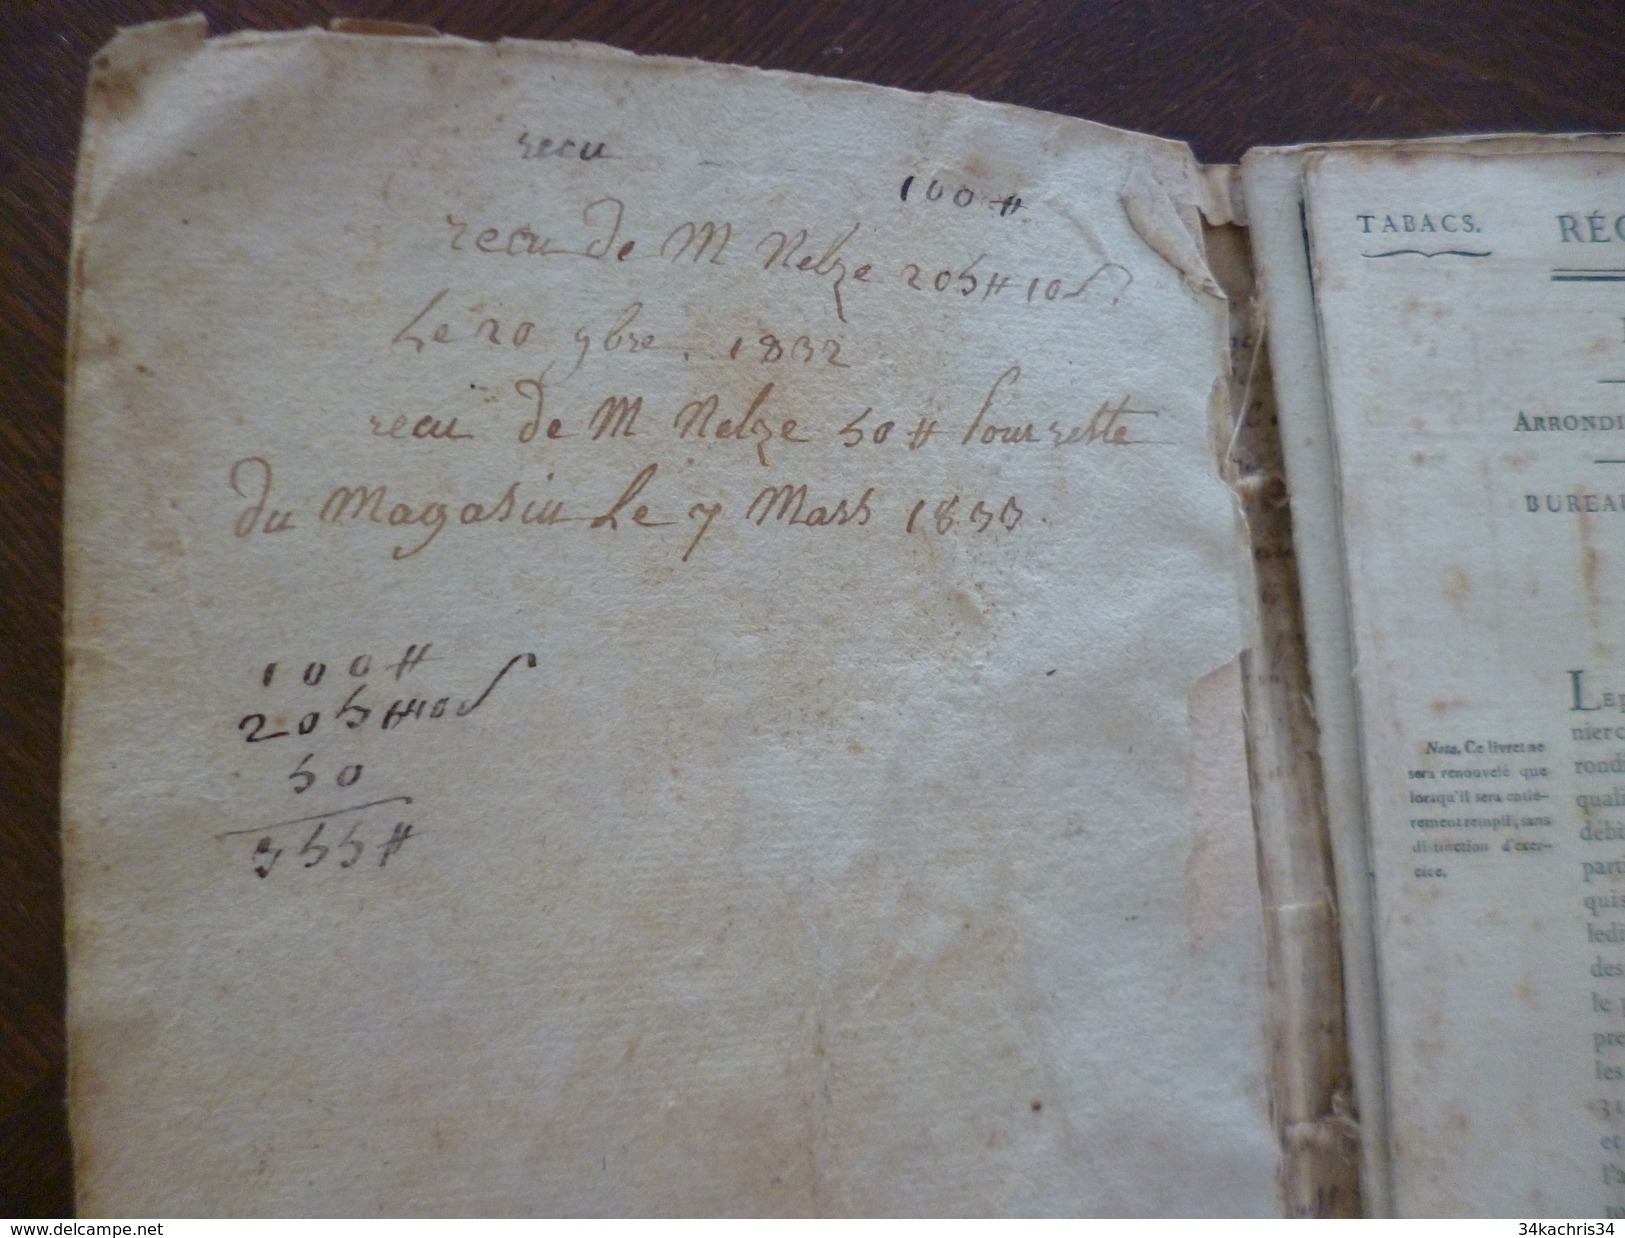 recu
100 ₶
recu de M Nelze 205 ₶ 10 s
Le 20 9bre. 1832
recu de M Nelze 50 ₶ pour reste
du Magasin Le 7 Mars 1833.
100 ₶
205 ₶ 10 s
50
355 ₶
TABACS.
RÉG
ARRONDI
BUREAU
Nota. Ce livret ne
sera renouvelé que
lorsqu'il sera entiè-
rement rempli, sans
distinction d'exer-
cice.
LE
nier
rond
quali
débi
parti
quis
ledi
des
le
pre
les
31
et
l'a
delcampe.net
34kachris34